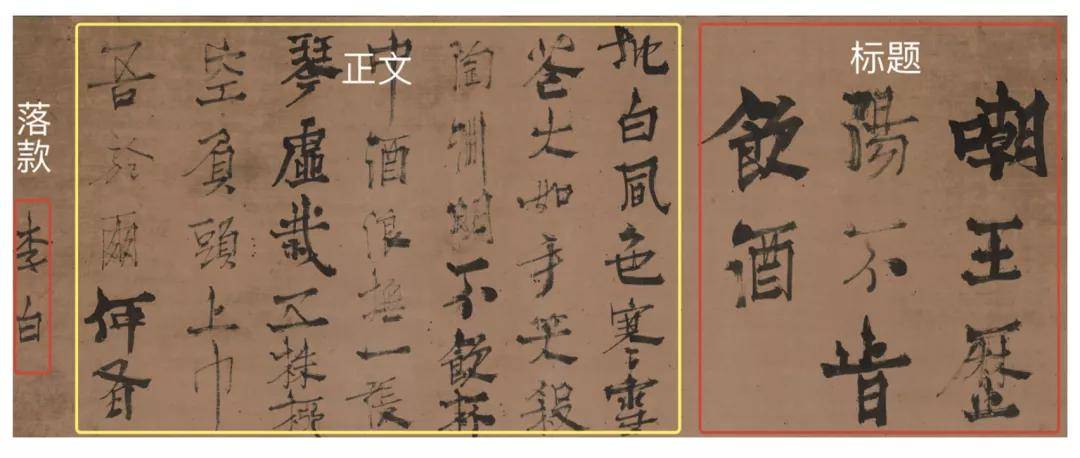 标题
嘲王歷
陽不肯
飲酒
正文
地白風色寒雪
花大如手笑殺
陶淵明不飲杯
中酒浪撫一張
琴虛栽五株柳
空負頭上巾
吾於爾何有
落款
李白